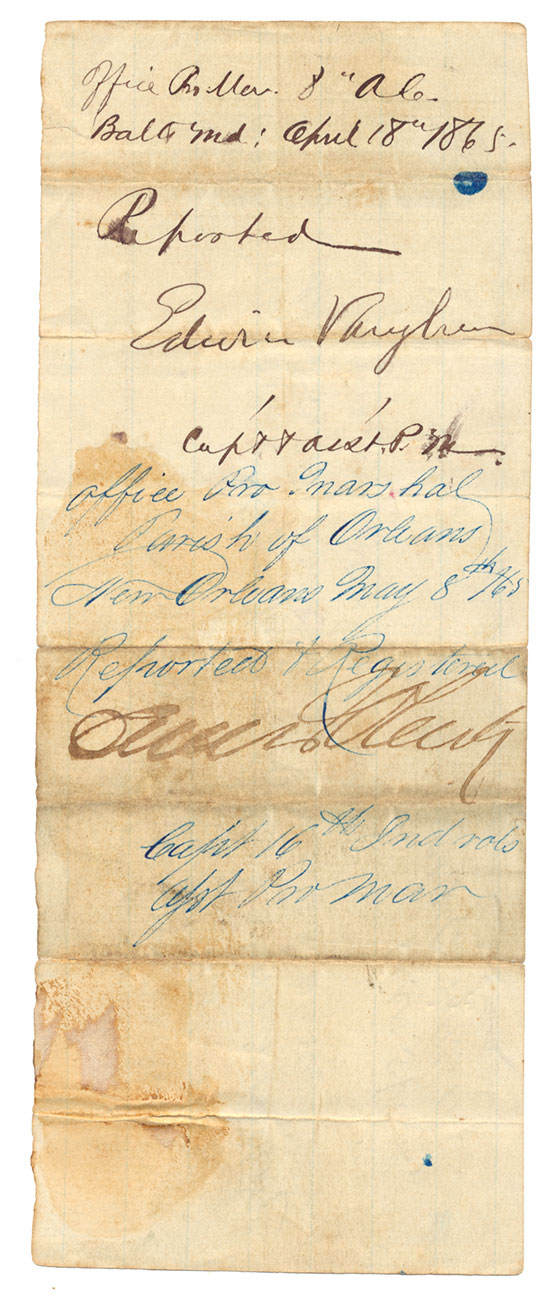 Office Pro. Mar. 8" A. C.
Balto Md: April 18th 1865.
Reported
Edwin Vaughn
Capt & asst. P. M.
Office Pro Marshal
Parish of Orleans
New Orleans May 8th /65
Reported & Registered
Capt 16th Ind vols
Pro Mar